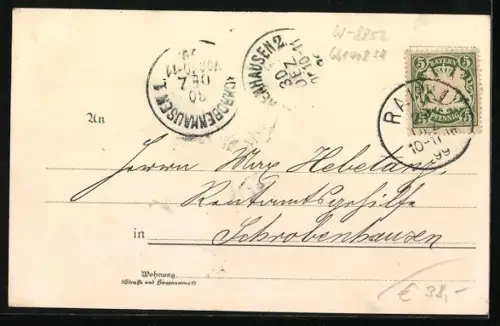 W-8852
6614084
SCHROBENHAUSEN 1
30
DEZ
VOR 10-11
99
HAUSEN 2
30
DEZ
10-11
5 BAYERN 5
PFENNIG
RA
10-11
99
An
Herrn Max Hebetanz,
Rentamtsgehilfe
in Schrobenhausen
Wohnung
(Strasse und Hausnummer)
€ 38,-